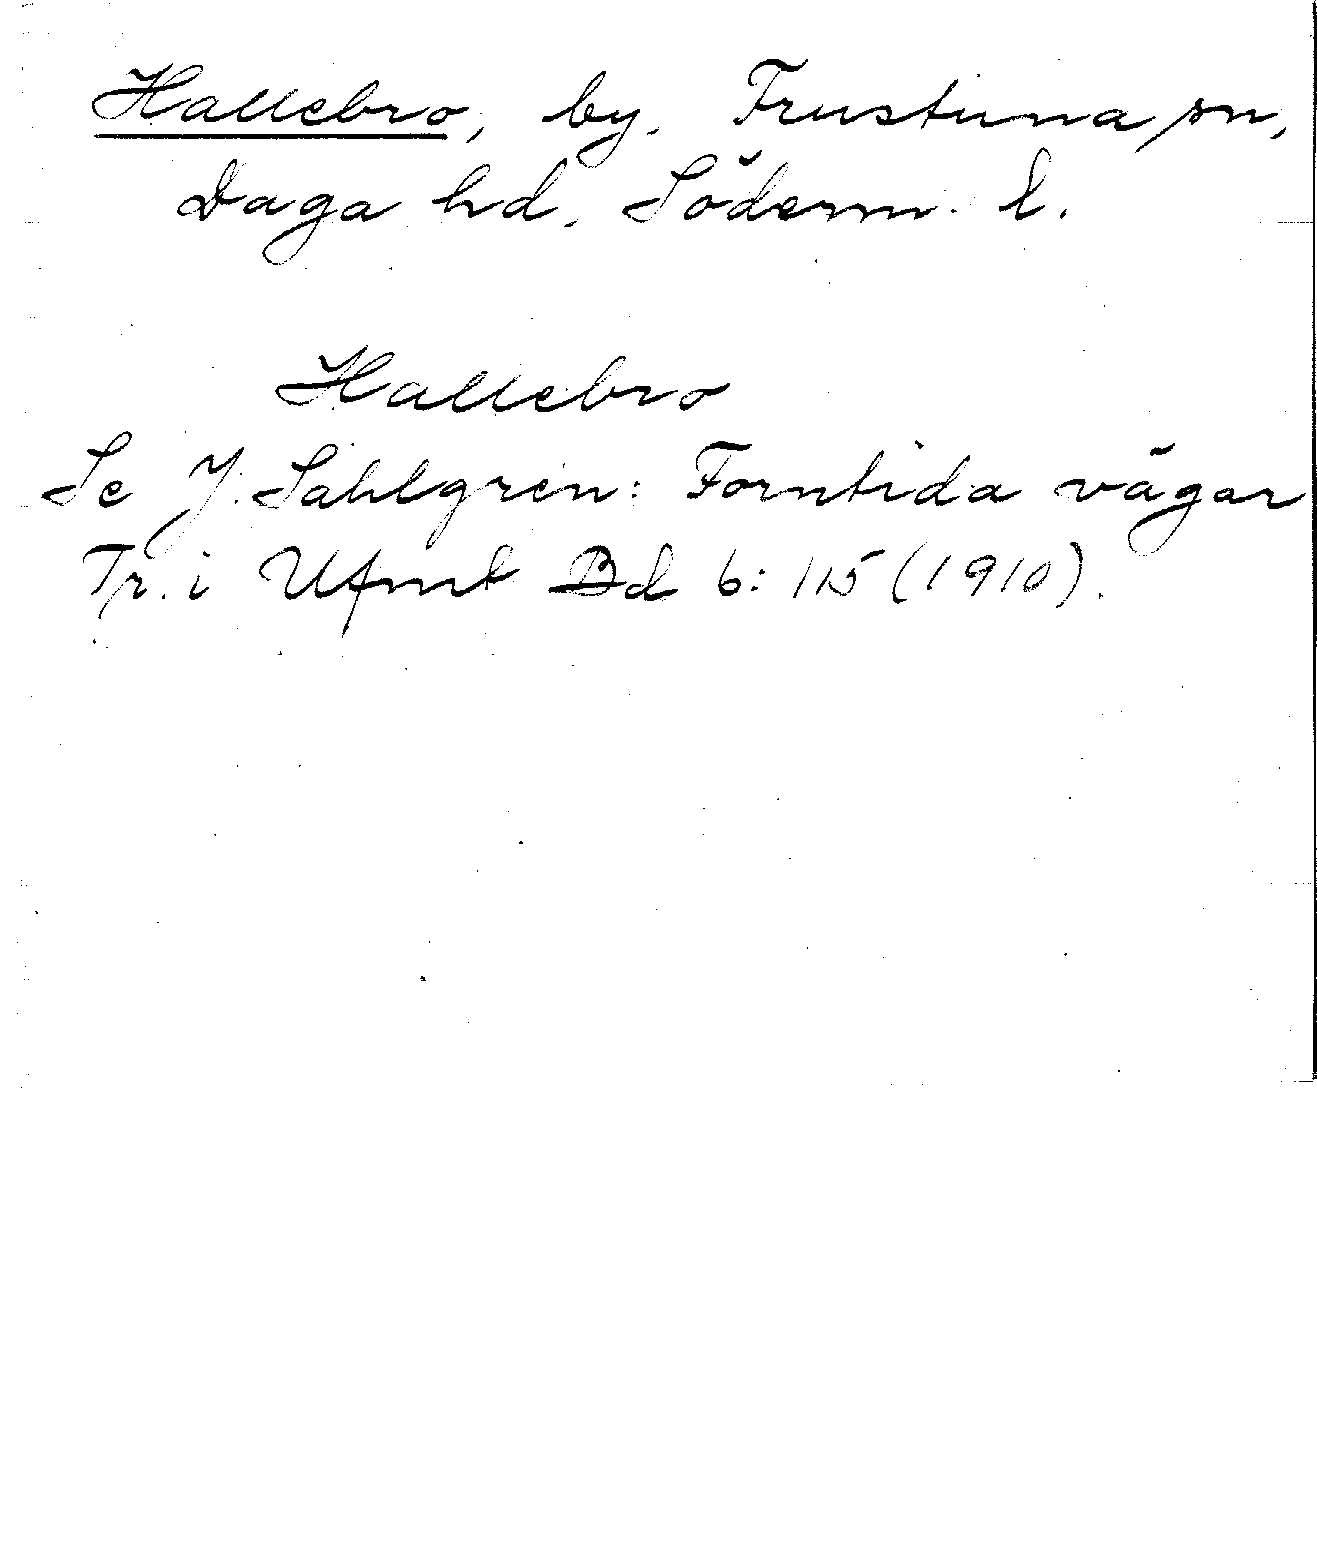 Hallebro, by. Frustuna sn,
Daga hd. Söderm. l.
Hallebro
Se J. Sahlgren: Forntida vägar
Tr. i Ufmt Bd 6: 115 (1910).